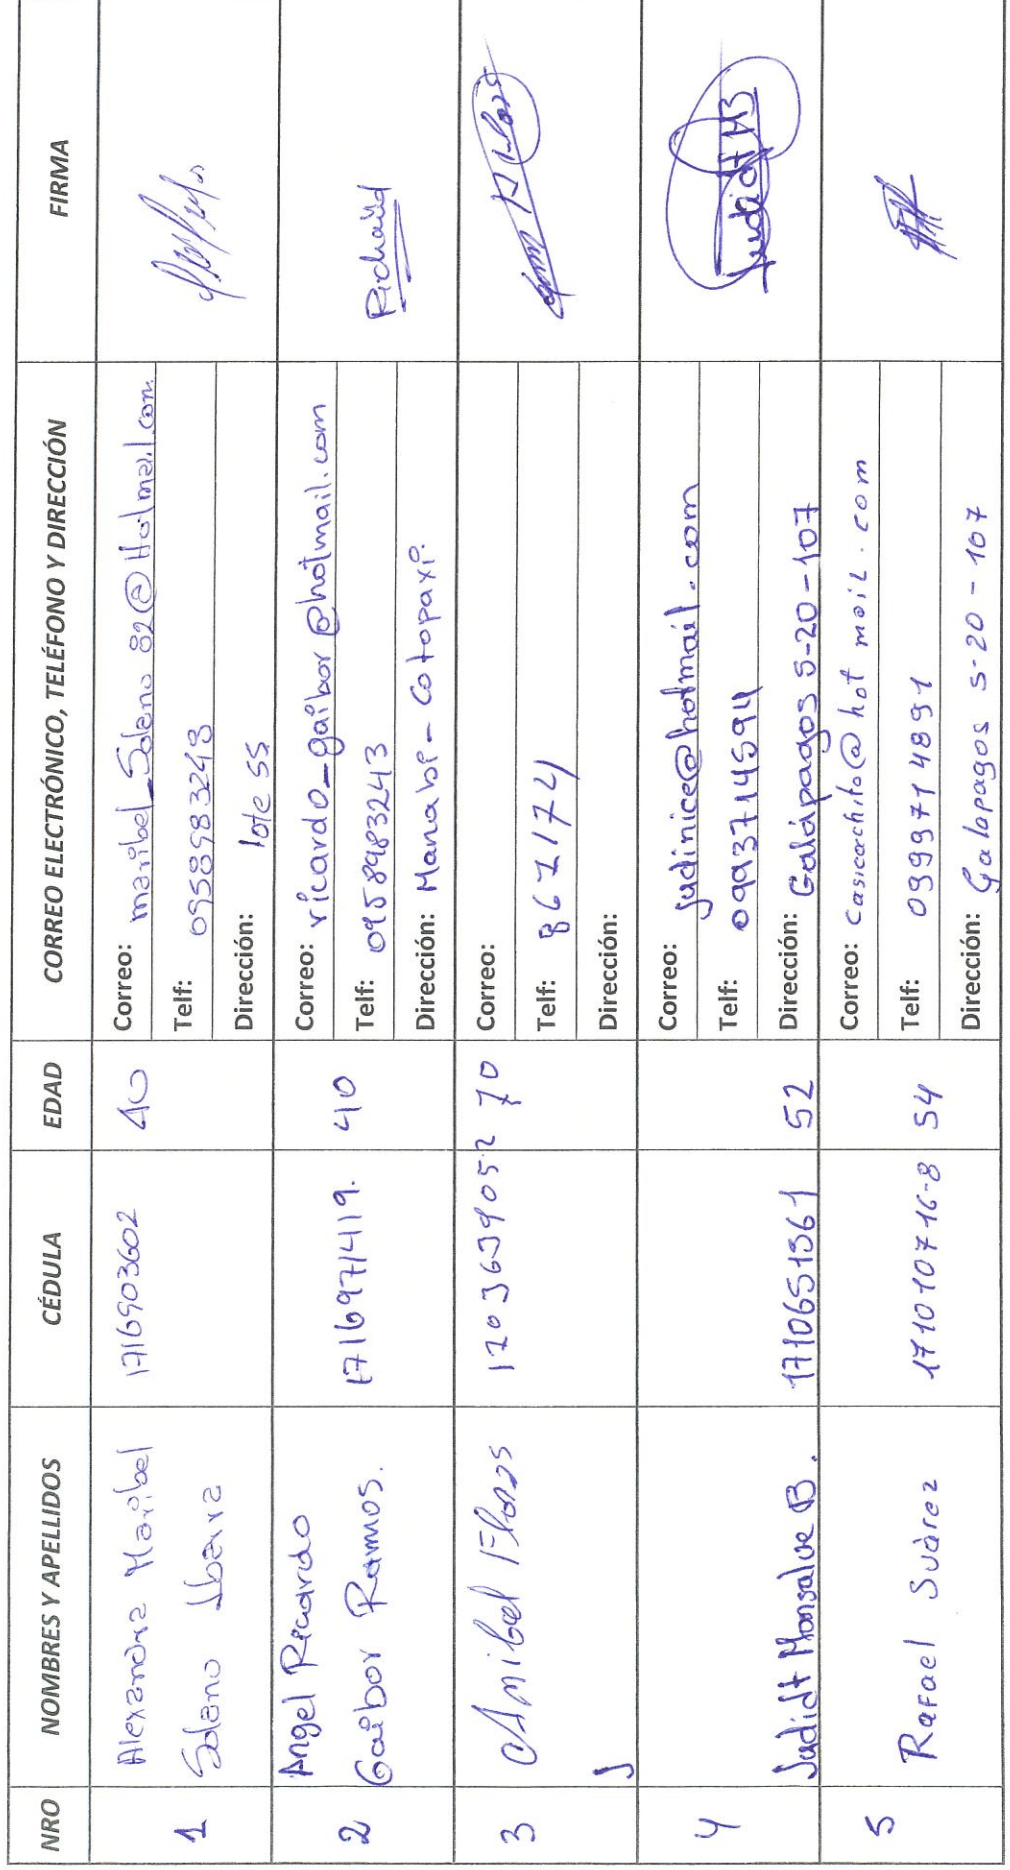 NRO NOMBRES Y APELLIDOS CÉDULA EDAD CORREO ELECTRÓNICO, TELÉFONO Y DIRECCIÓN FIRMA
1 Alexandra Maribel Solano Ibarra 1716903602 40
Correo: maribel_Solano82@Hotmail.com
Telf: 0958983243
Dirección: lote 55
2 Angel Ricardo Gaibor Ramos. 1716971419. 40
Correo: ricardo_gaibor@hotmail.com
Telf: 0958983243
Dirección: Manabi - Cotopaxi.
Richard
3 Anibal Flores 1703639052 70
Correo:
Telf: 862174
Dirección:
4 Judidt Monsalve B. 1710651361 52
Correo: judinice@hotmail.com
Telf: 0993714594
Dirección: Galápagos S-20-107
Judidt MB
5 Rafael Suàrez 171010716-8 54
Correo: Casicachito@hot mail.com
Telf: 0999714891
Dirección: Galapagos S-20-107